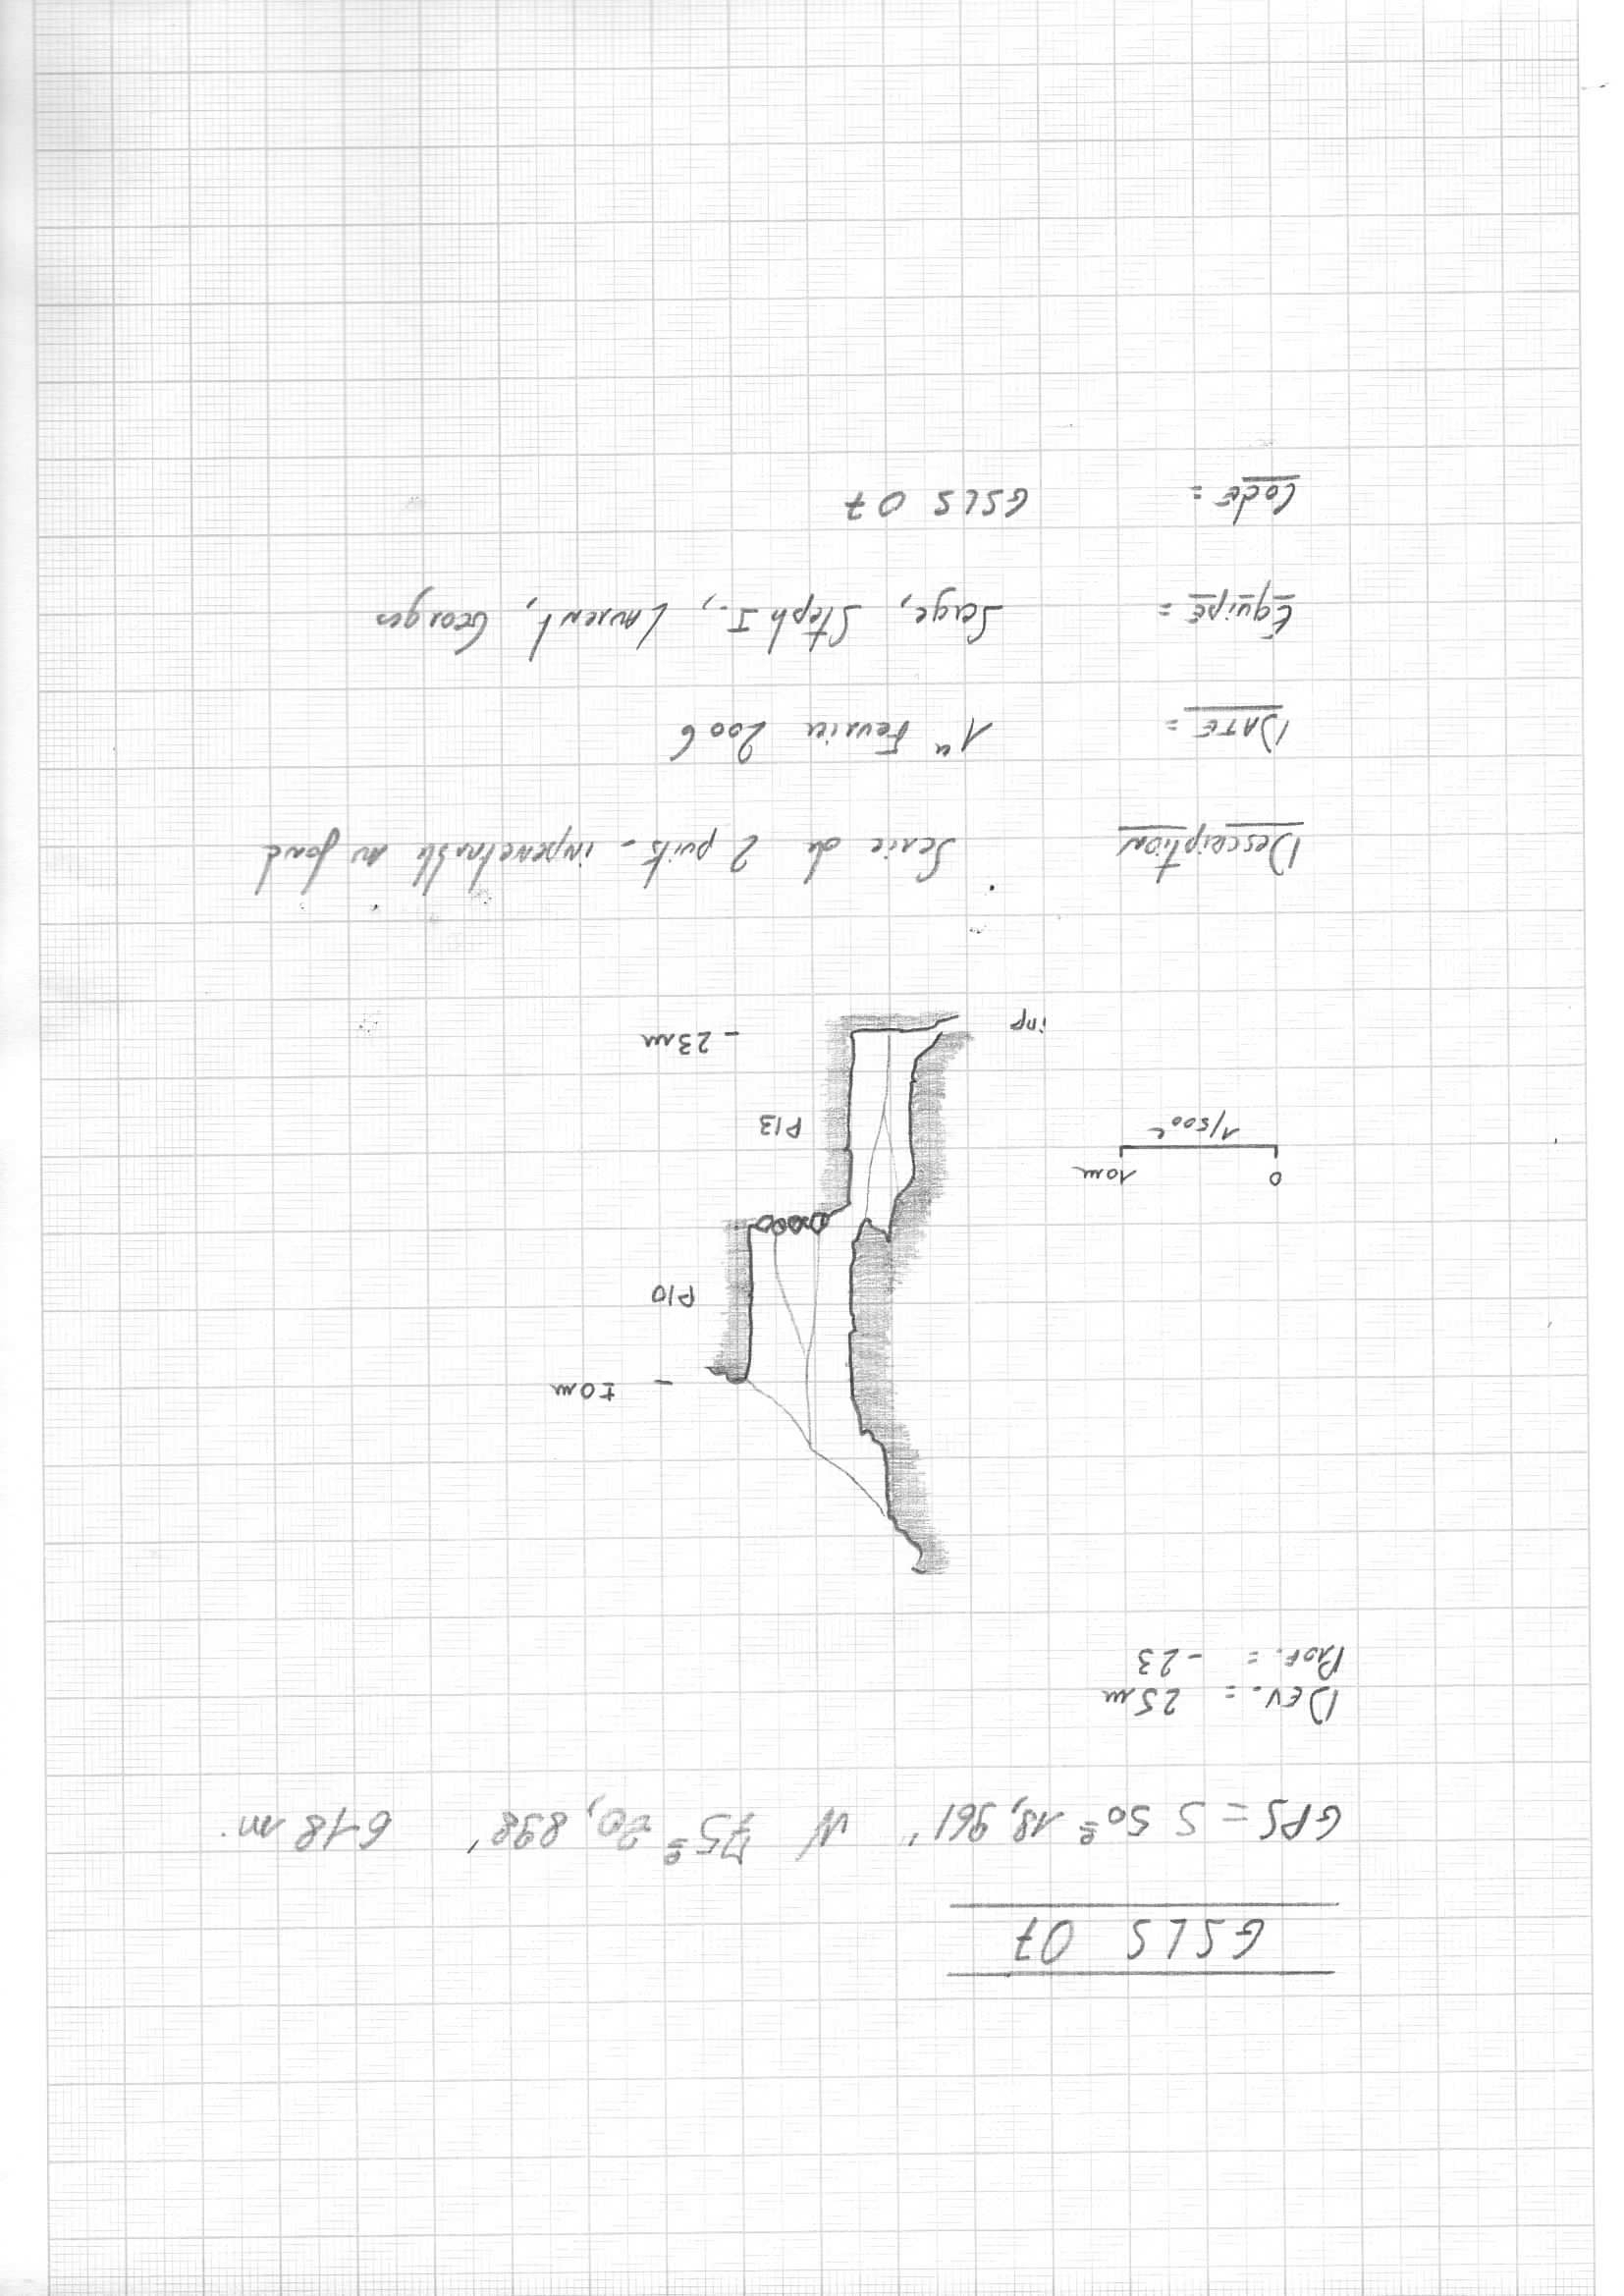 GSLS 07
GPS = S 50° 18,961' W 75° 20,898' 618 m.
DEV. = 25m
PROF. = -23
- ±0m
P10
0 10m
1/500e
P13
inp
- 23m
Description Serie de 2 puits - inpenetrable au fond
DATE = 1er Fevrier 2006
Équipe = Serge, Steph I., Laurent, Georges
Code = GSLS 07